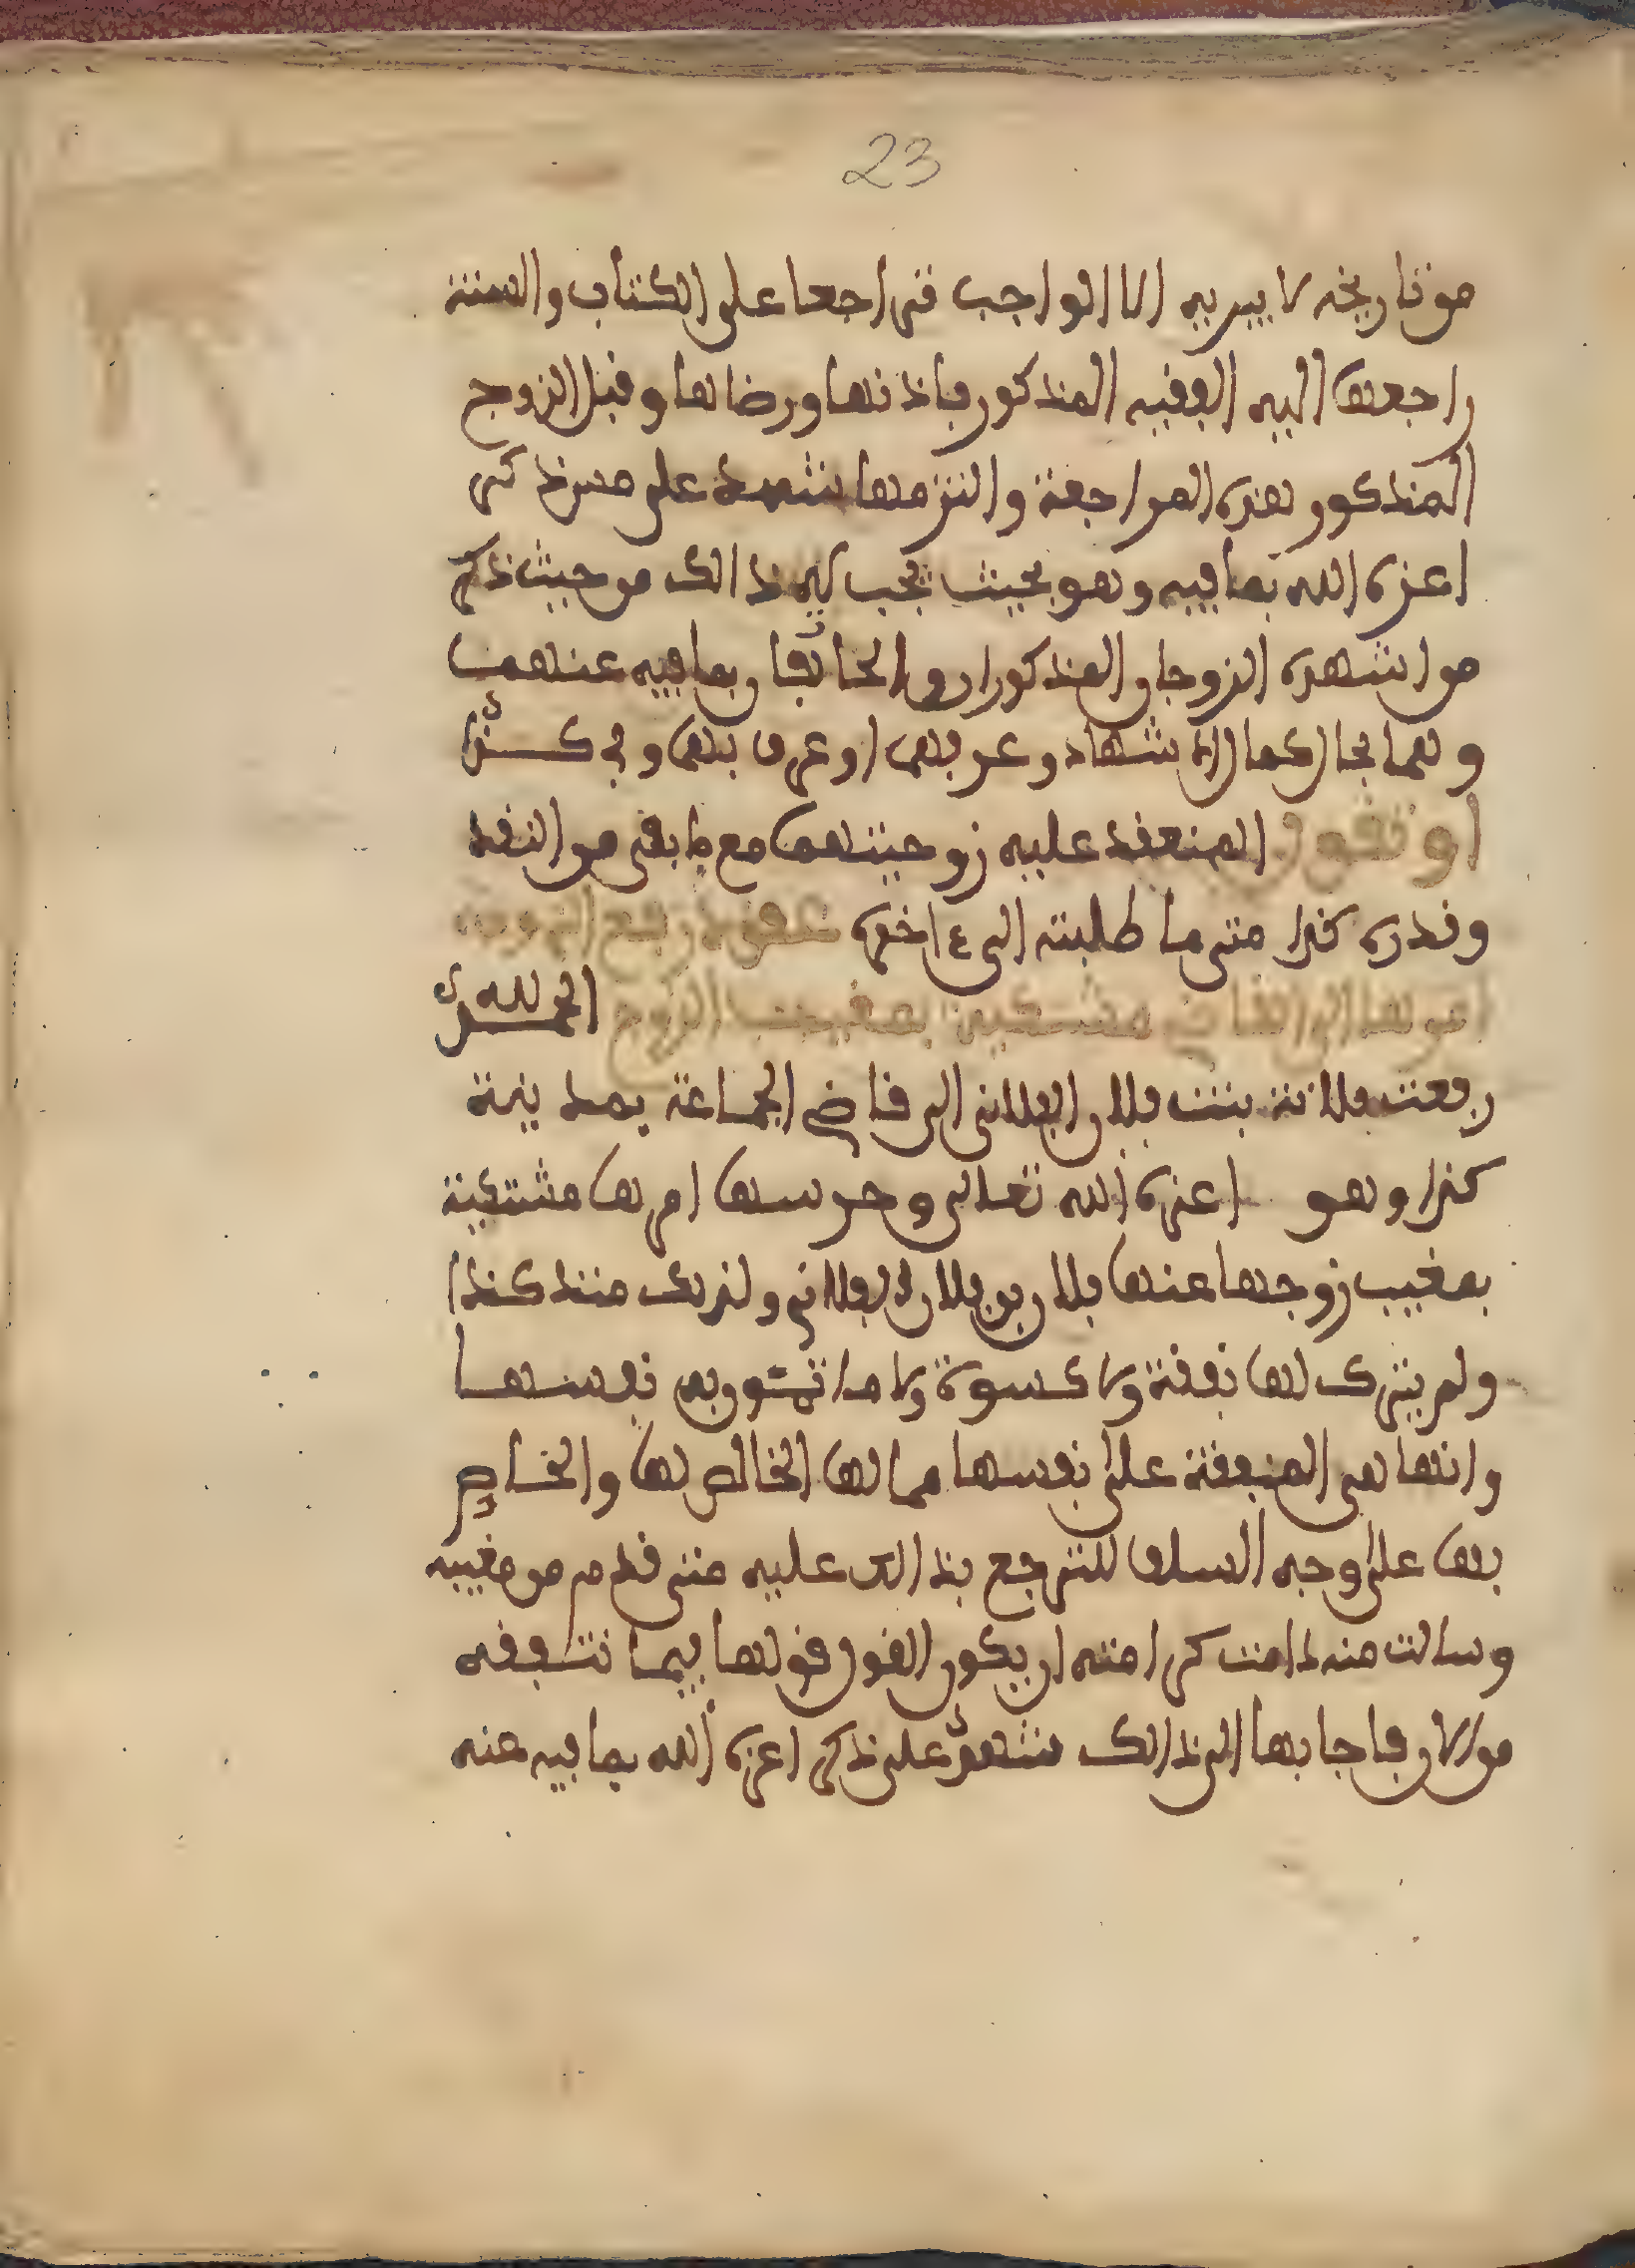 23
من تاريخه لا يبريه الا الواجب فتراجعا على الكتاب والسنة
راجعها اليه الفقيه المذكور باذنها ورضاها وقبل الزوج
المذكور هذه المراجعة والتزمها شهد على من ذكر
اعزه الله بما فيه وهو بحيث يجب له ذالك من حيث ذكر
من اشهده الزوجان المذكوران بما فيه عنهما
وهما بحال كمال الاشهاد وعرفهما او عرف بهما وفي كذا
او تقول المنعقد عليه زوجيتهما مع ما بقي من النقد
وقدره كذا متى ما طلبته الى اخره عقد رفع الزوجة
امرها الى القاضي مشتكية بمغيب الزوج الحمد لله
رفعت فلانة بنت فلان الفلاني الى قاضي الجماعة بمدينة
كذا وهو اعزه الله تعالى وحرسها امرها مشتكية
بمغيب زوجها عنها فلان بن فلان الفلاني ولذلك منذ كذا
ولم يترك لها نفقة ولا كسوة ولا ما تمون به نفسها
وانها هي المنفقة على نفسها من مالها الخالص لها والخاص
بها على وجه السلف لترجع بذالك عليه متى قدم من مغيبه
وسالت منه دامت كرامته ان يكون القول قولها فيما تنفقه
من الان فاجابها الى ذالك شهد على ذكر اعزه الله بما فيه عنه